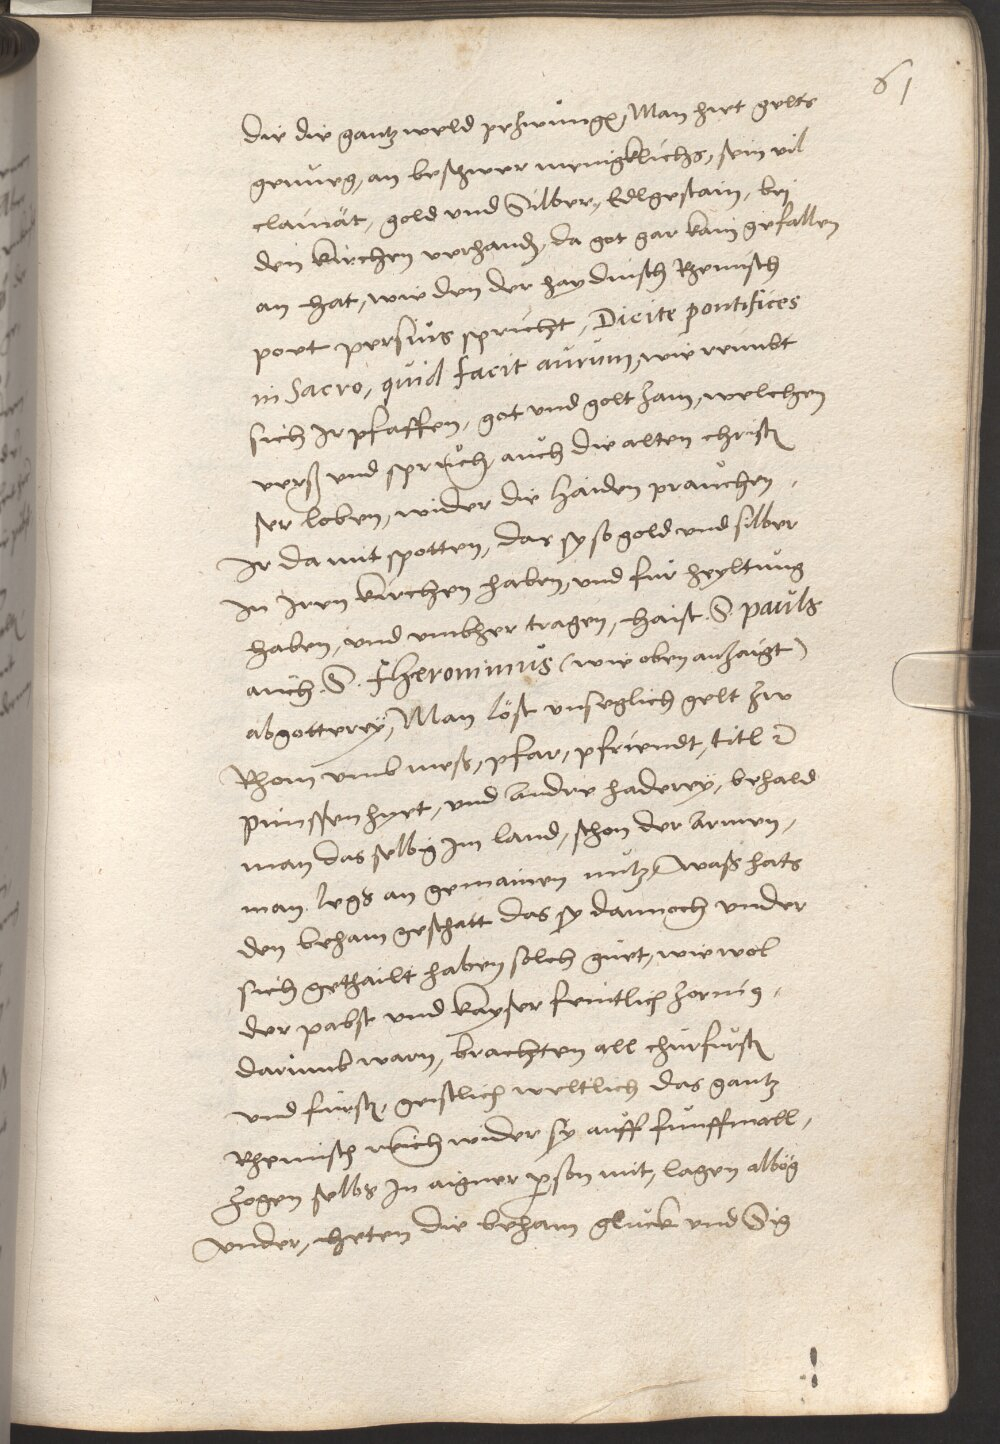 61
die die gantz weld pezwungen, Man hiet gelts
genueg, an beschwer menigklichs, sein vil
clainat, gold und Silber, Edlgestain, bei
den kirchen verhanden, da got gar kain gefallen
an hat, wie den der haydnisch Rhemisch
poet persius spricht, Dicite pontifices
in Sacro, quid facit aurum, wie reimbt
sich Ir pfaffen, got und golt zam, welchen
verß und spruch, auch die alten christen
ser loben, wider die haiden prauchen,
Ir da mit spotten, das sy so gold und silber
In Iren kirchen haben, und für heyltung
haben, und umbher tragen, haist S. pauls
auch S. Hieronimus (wie oben anzaigt)
abgotterey, Man löst unseglich gelt zw
Rhom umb mess, pfar, pfriendt, titl
und Andre haderey, behald
man das selbig Im land, schon der Armen,
man legs an gemainen nutz, Waß hats
den beham geschatt das sy dannoch under
sich gethailt haben solch güet, wie wol
der pabst und kayser feintlich zornig,
darumb warn, brachten all churfürsten
und fürsten, geistlich weltlich das gantz
Rhemisch reich wider sy auff funffmall,
Zogen selbs In aigner person mit, lagen albög
under, heten die beham gluck und Sig